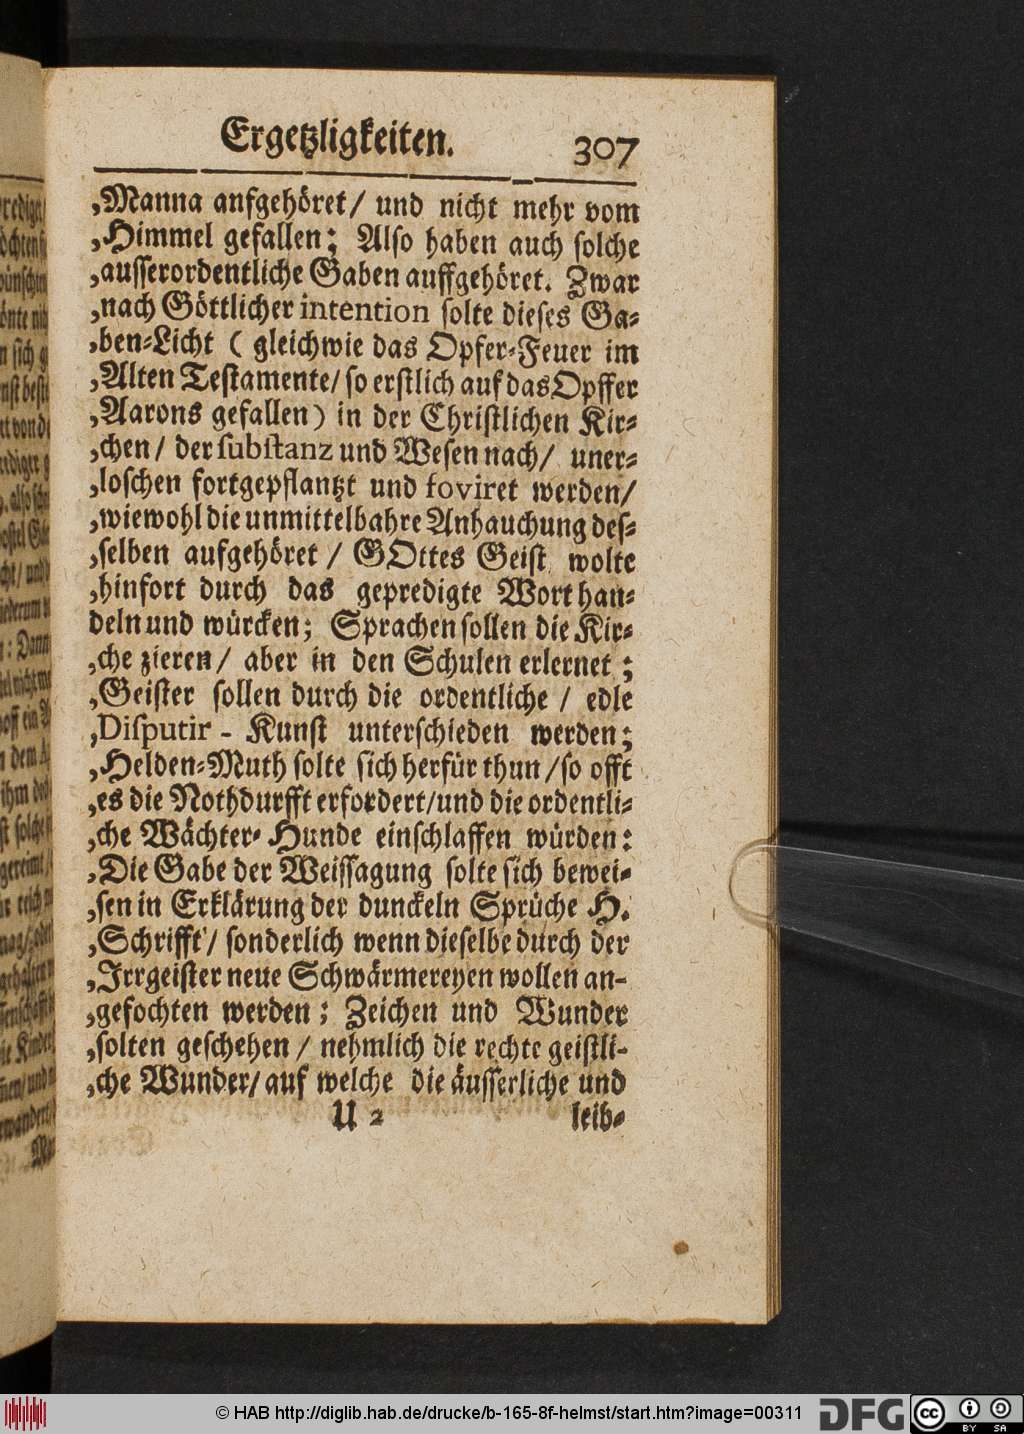 Ergetzligkeiten. 307
,Manna anfgehöret/ und nicht mehr vom
,Himmel gefallen; Also haben auch solche
,ausserordentliche Gaben auffgehöret. Zwar
,nach Göttlicher intention solte dieses Ga-
,ben-Licht ( gleichwie das Opfer-Feuer im
,Alten Testamente/ so erstlich auf das Opffer
,Aarons gefallen) in der Christlichen Kir-
,chen/ der substanz und Wesen nach/ uner-
,loschen fortgepflantzt und foviret werden/
,wiewohl die unmittelbahre Anhauchung des-
,selben aufgehöret / GOttes Geist wolte
,hinfort durch das gepredigte Wort han-
deln und würcken; Sprachen sollen die Kir-
,che zieren/ aber in den Schulen erlernet ;
,Geister sollen durch die ordentliche / edle
,Disputir - Kunst unterschieden werden;
,Helden-Muth solte sich herfür thun /so offt
,es die Nothdurfft erfordert/und die ordentli-
,che Wächter- Hunde einschlaffen würden:
,Die Gabe der Weissagung solte sich bewei-
,sen in Erklärung der dunckeln Sprüche H.
,Schrifft/ sonderlich wenn dieselbe durch der
,Irrgeister neue Schwärmereyen wollen an-
,gefochten werden; Zeichen und Wunder
,solten geschehen / nehmlich die rechte geistli-
,che Wunder/ auf welche die äusserliche und
U 2 leib-
© HAB http://diglib.hab.de/drucke/b-165-8f-helmst/start.htm?image=00311
DFG
cc BY SA